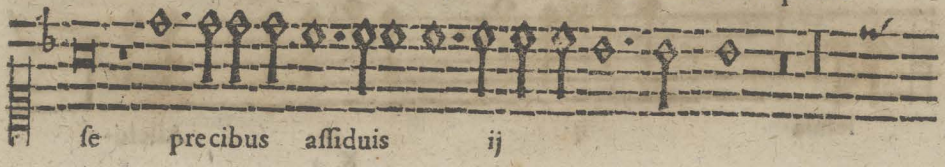 ſe precibus aſſiduis ij